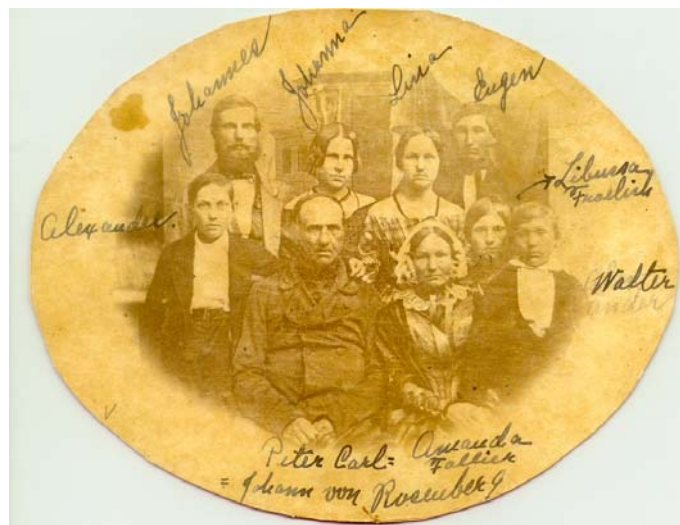 Johannes
Johanna
Lina
Eugen
Libussa
Froelich
Alexander.
Walter
Peter Carl= Amanda
Fallier
= Johann von Rosenberg